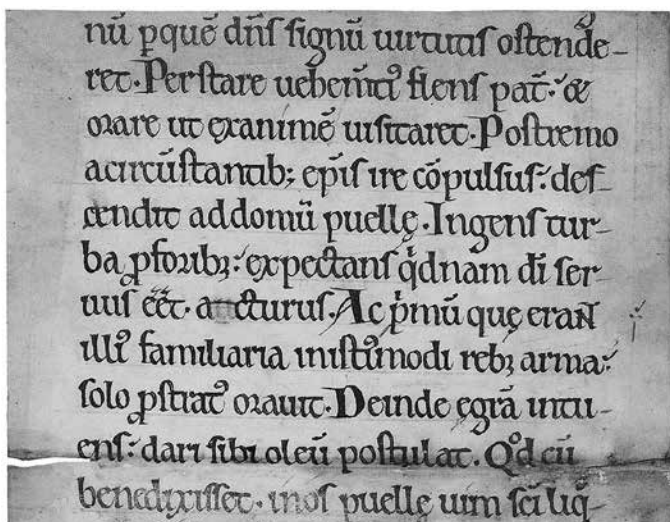 nū ꝑquē dn̄s signū uirtutis ostende-
ret. Perstare uehem̄t᷒ flens pat̄: &
orare ut exanimē uisitaret. Postremo
acircūstantib; ep̄is ire cōpulsus: des-
cendit addomū puellę. Ingens tur-
ba ꝓforib;: expectans qͥdnam dī ser-
uus eēt. a cturus. Ac pͥmū quę erant
illi᷒ familiaria inistīmodi reb; arma:
solo ꝓstrat᷒ orauit. Deinde ęgrā intu-
ens: dari sibi oleū postulat. Qͦd cū
benedixisset. inos puellę uim scī liq-